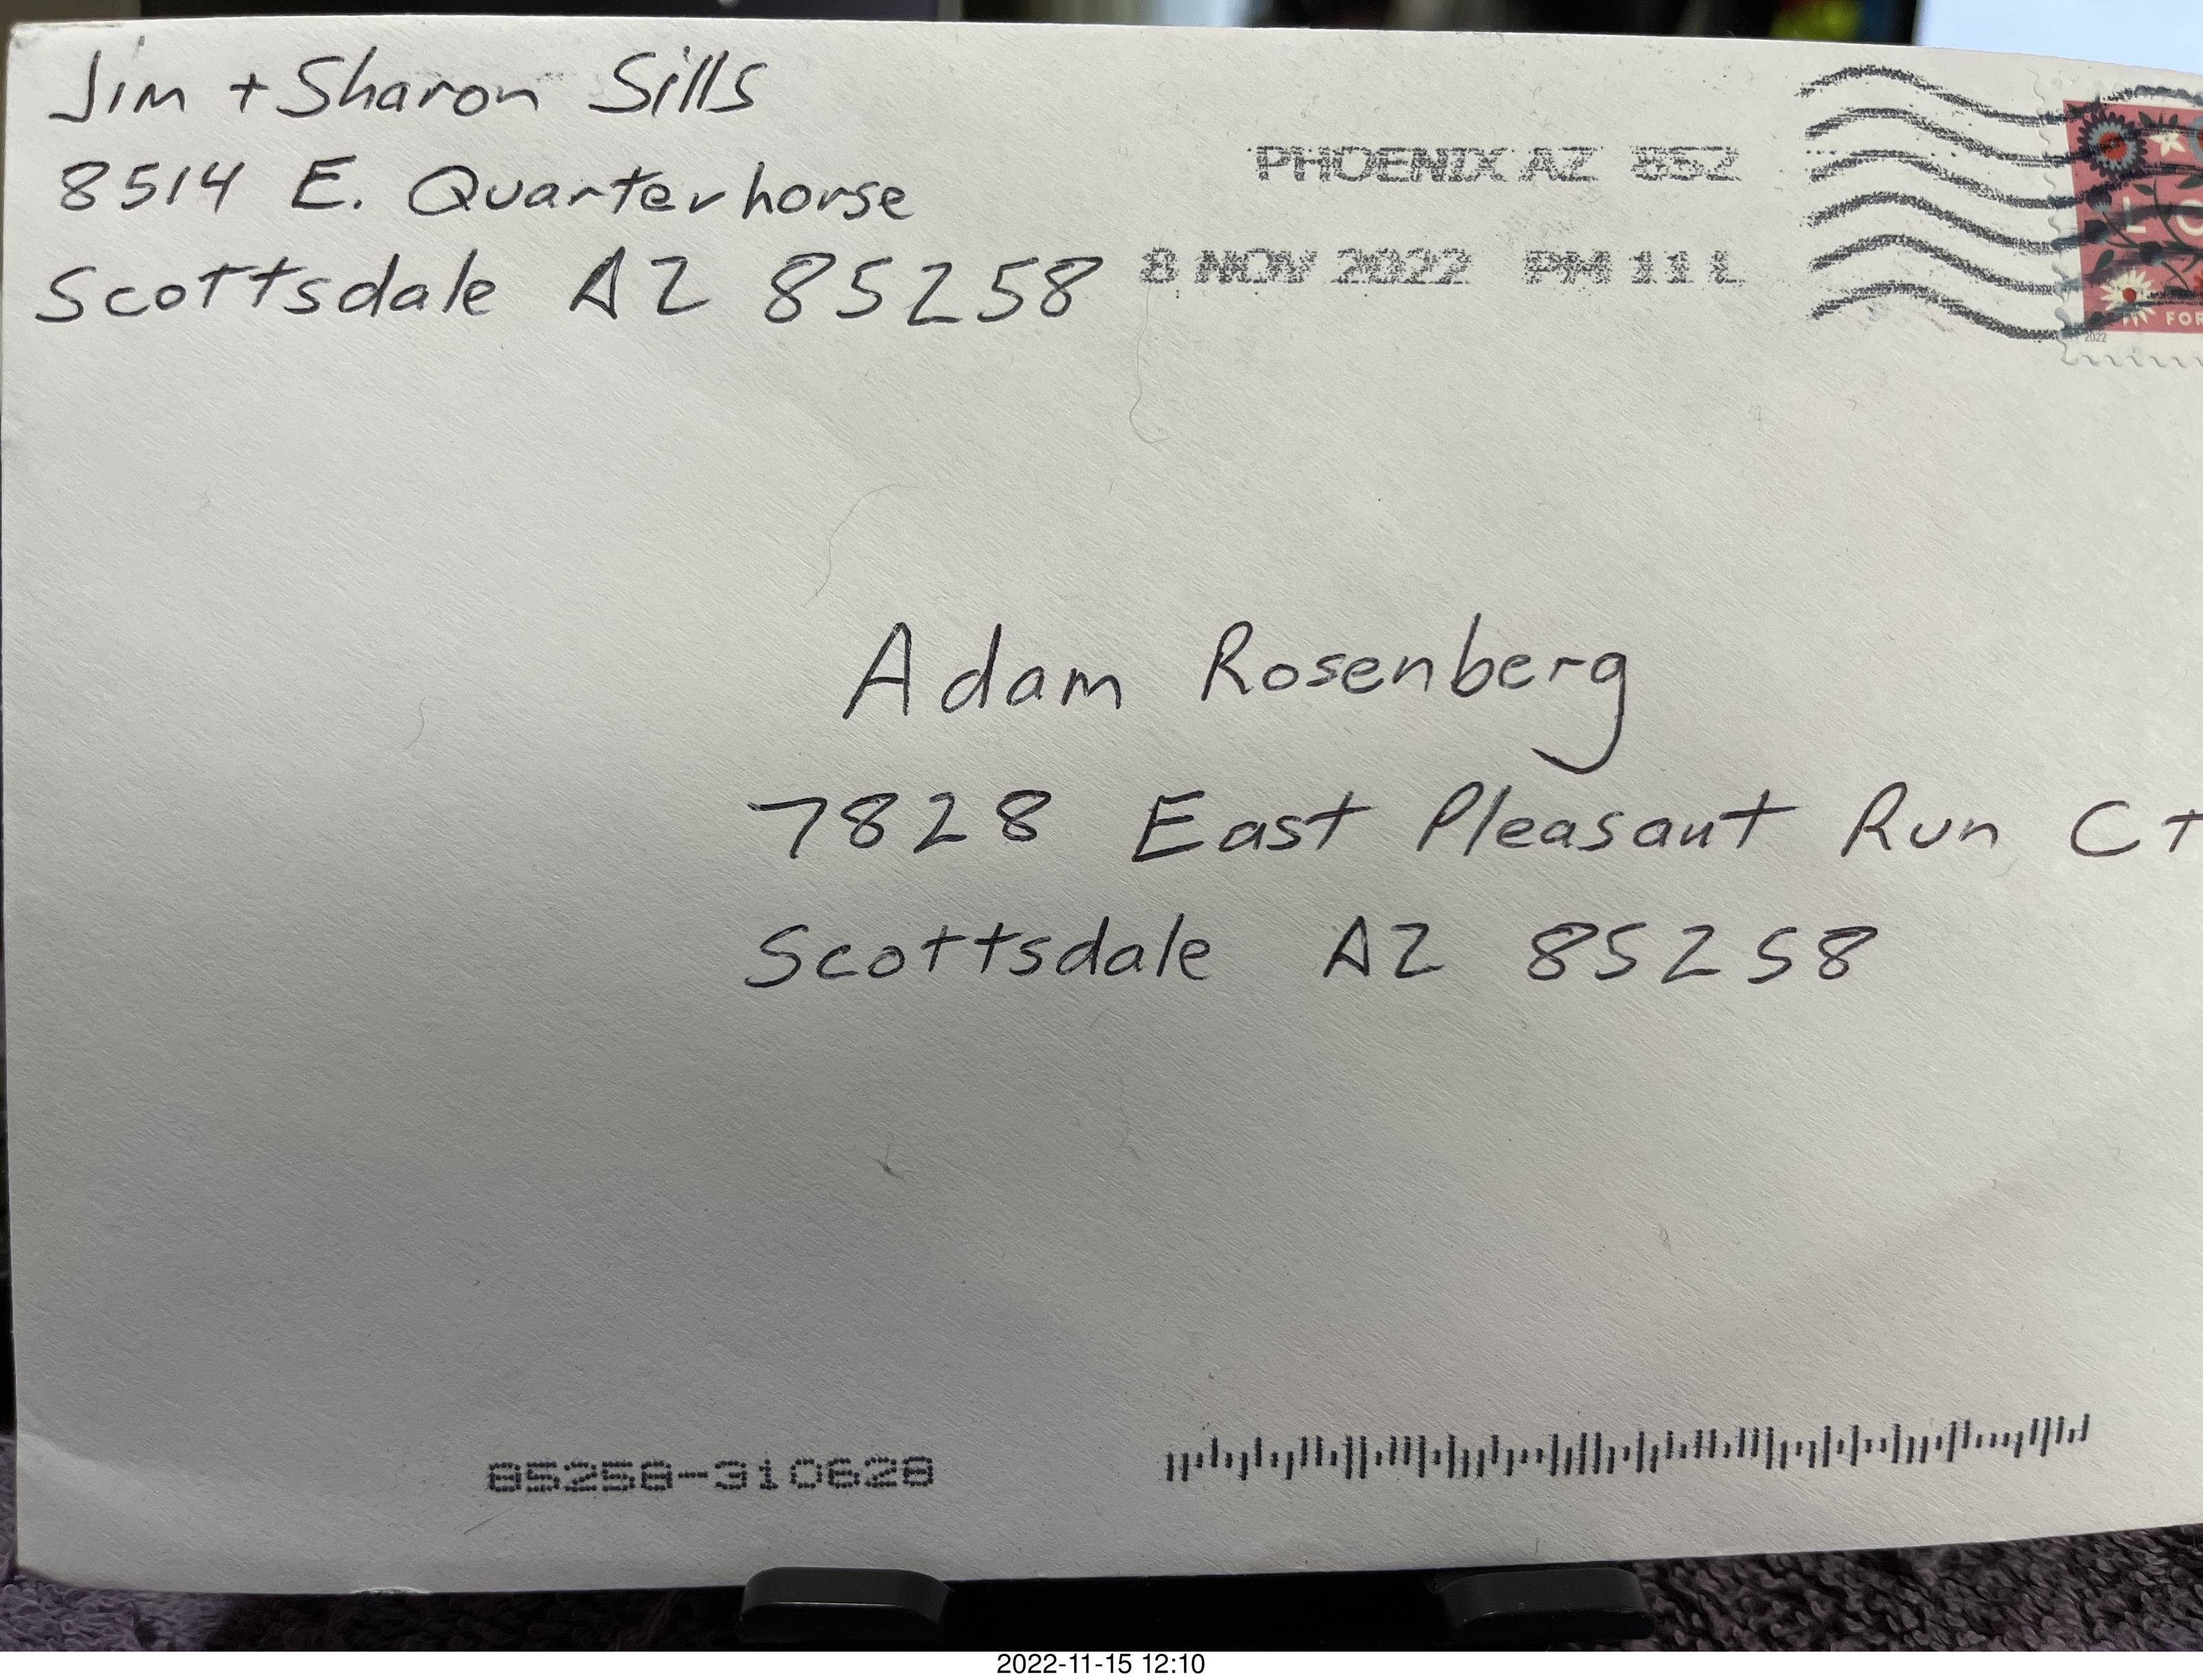 Jim + Sharon Sills
8514 E. Quarterhorse
Scottsdale AZ 85258
PHOENIX AZ 852
8 NOV 2022 PM 11 L
L O
FOR
2022
Adam Rosenberg
7828 East Pleasant Run Ct
Scottsdale AZ 85258
85258-310628
2022-11-15 12:10